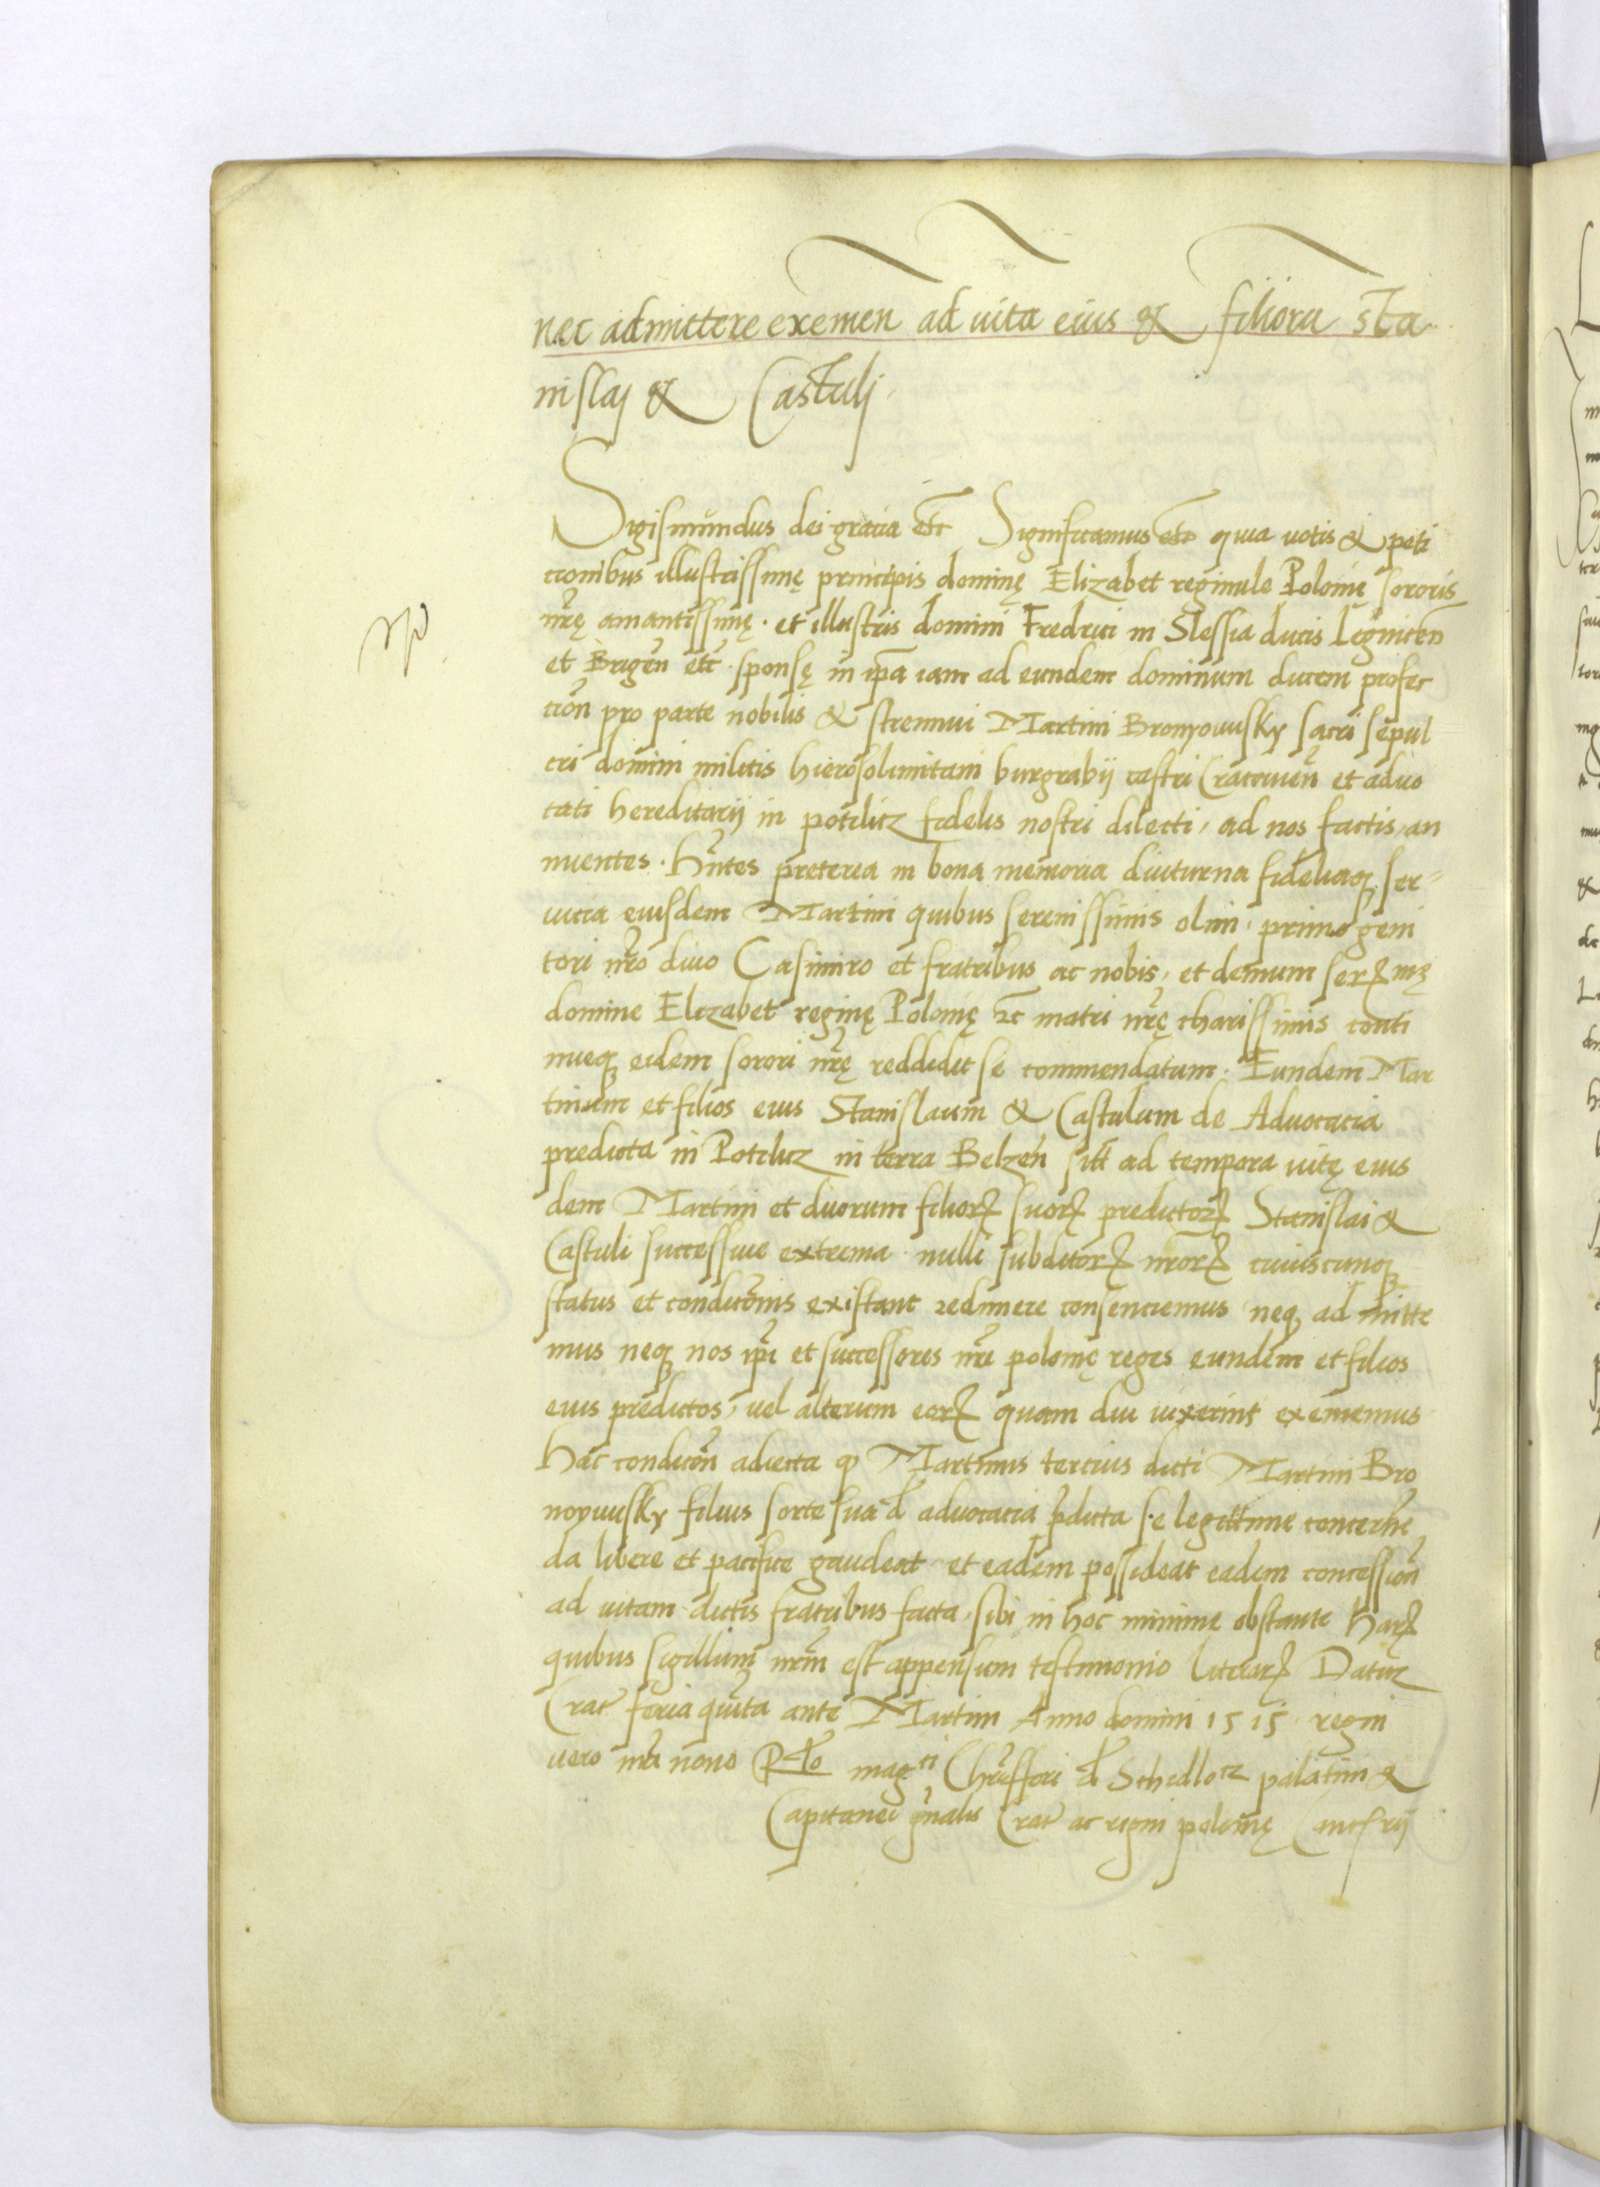 nec admittere exemen ad vita eius & filioru Sta
nislaj & Castulj
Sigismundus dei gracia etc Significamus etc quia votis & peti
cionibus illustrissimę principis dominę Elizabet reginule Polonię sororis
nr̃ę amantissimę. et illustris domini Fredrici in Slessia ducis Legnicen̄
et Brigen̄ etc. sponsę in ip̄a iam ad eundem dominum ducem profec
cion̄ pro parte nobilis & strennui Martini Bronyovusky sacri sepul
cri domini militis hierosolimitani burgrabij castri Cracovien̄ et advo
cati hereditarij in potilicz fidelis nostri dilecti, ad nos factis, an
nuentes. Hn̄tes preterea in bona memoria diuturna fideliaqꝫ ser-
uicia eiusdem Martini quibus serenissimis olim. primogeni
tori nr̃o divo Casimiro et fratribus ac nobis, et demum serꝫmę
domine Elizabet reginę Polonię ꝛc matri nr̃ę charissimis conti
nueqꝫ eidem sorori nr̃ę reddidit se commendatum. Eundem Mar
tinum et filios eius Stanislaum & Castulum de Advocacia
predicta in Potilicz in terra Belzen̄ sitt ad tempora vitę eius
dem Martini et duorum filiorꝫ suorꝫ predictorꝫ Stanislai &
Castuli successiue extrema. nulli subditorꝫ nr̃orꝫ cuiuscunqꝫ
status et condicōnis existant redimere consenciemus neqꝫ admitte
mus neqꝫ nos ip̄i et successores nr̃i polonię reges eundem et filios
eius predictos, vel alterum eorꝫ quam diu vixerint exememus
Hac condicōn̄ adiecta ꝙ Martinus tercius dicti Martini Bro
noyvusky filius sorte sua d̄ advocacia p̄dicta s.e legittime concerne̅
da libere et pacifice gaudeat et eadem possideat eadem concession̄
ad vitam dictis fratribus facta, sibi in hoc minime obstante Harꝫ
quibus sigillum nr̃m est appensum testimonio literarꝫ Datuꝫ
Crac̄ feria quīta ante Martini Anno domini 1515 regni
vero nr̃i nono R̄lo mag^ci Chr̃istferi d̄ Schidlocz palatini &
Capitanei gn̄alis Crac̄ ac regni polonię Cancrij